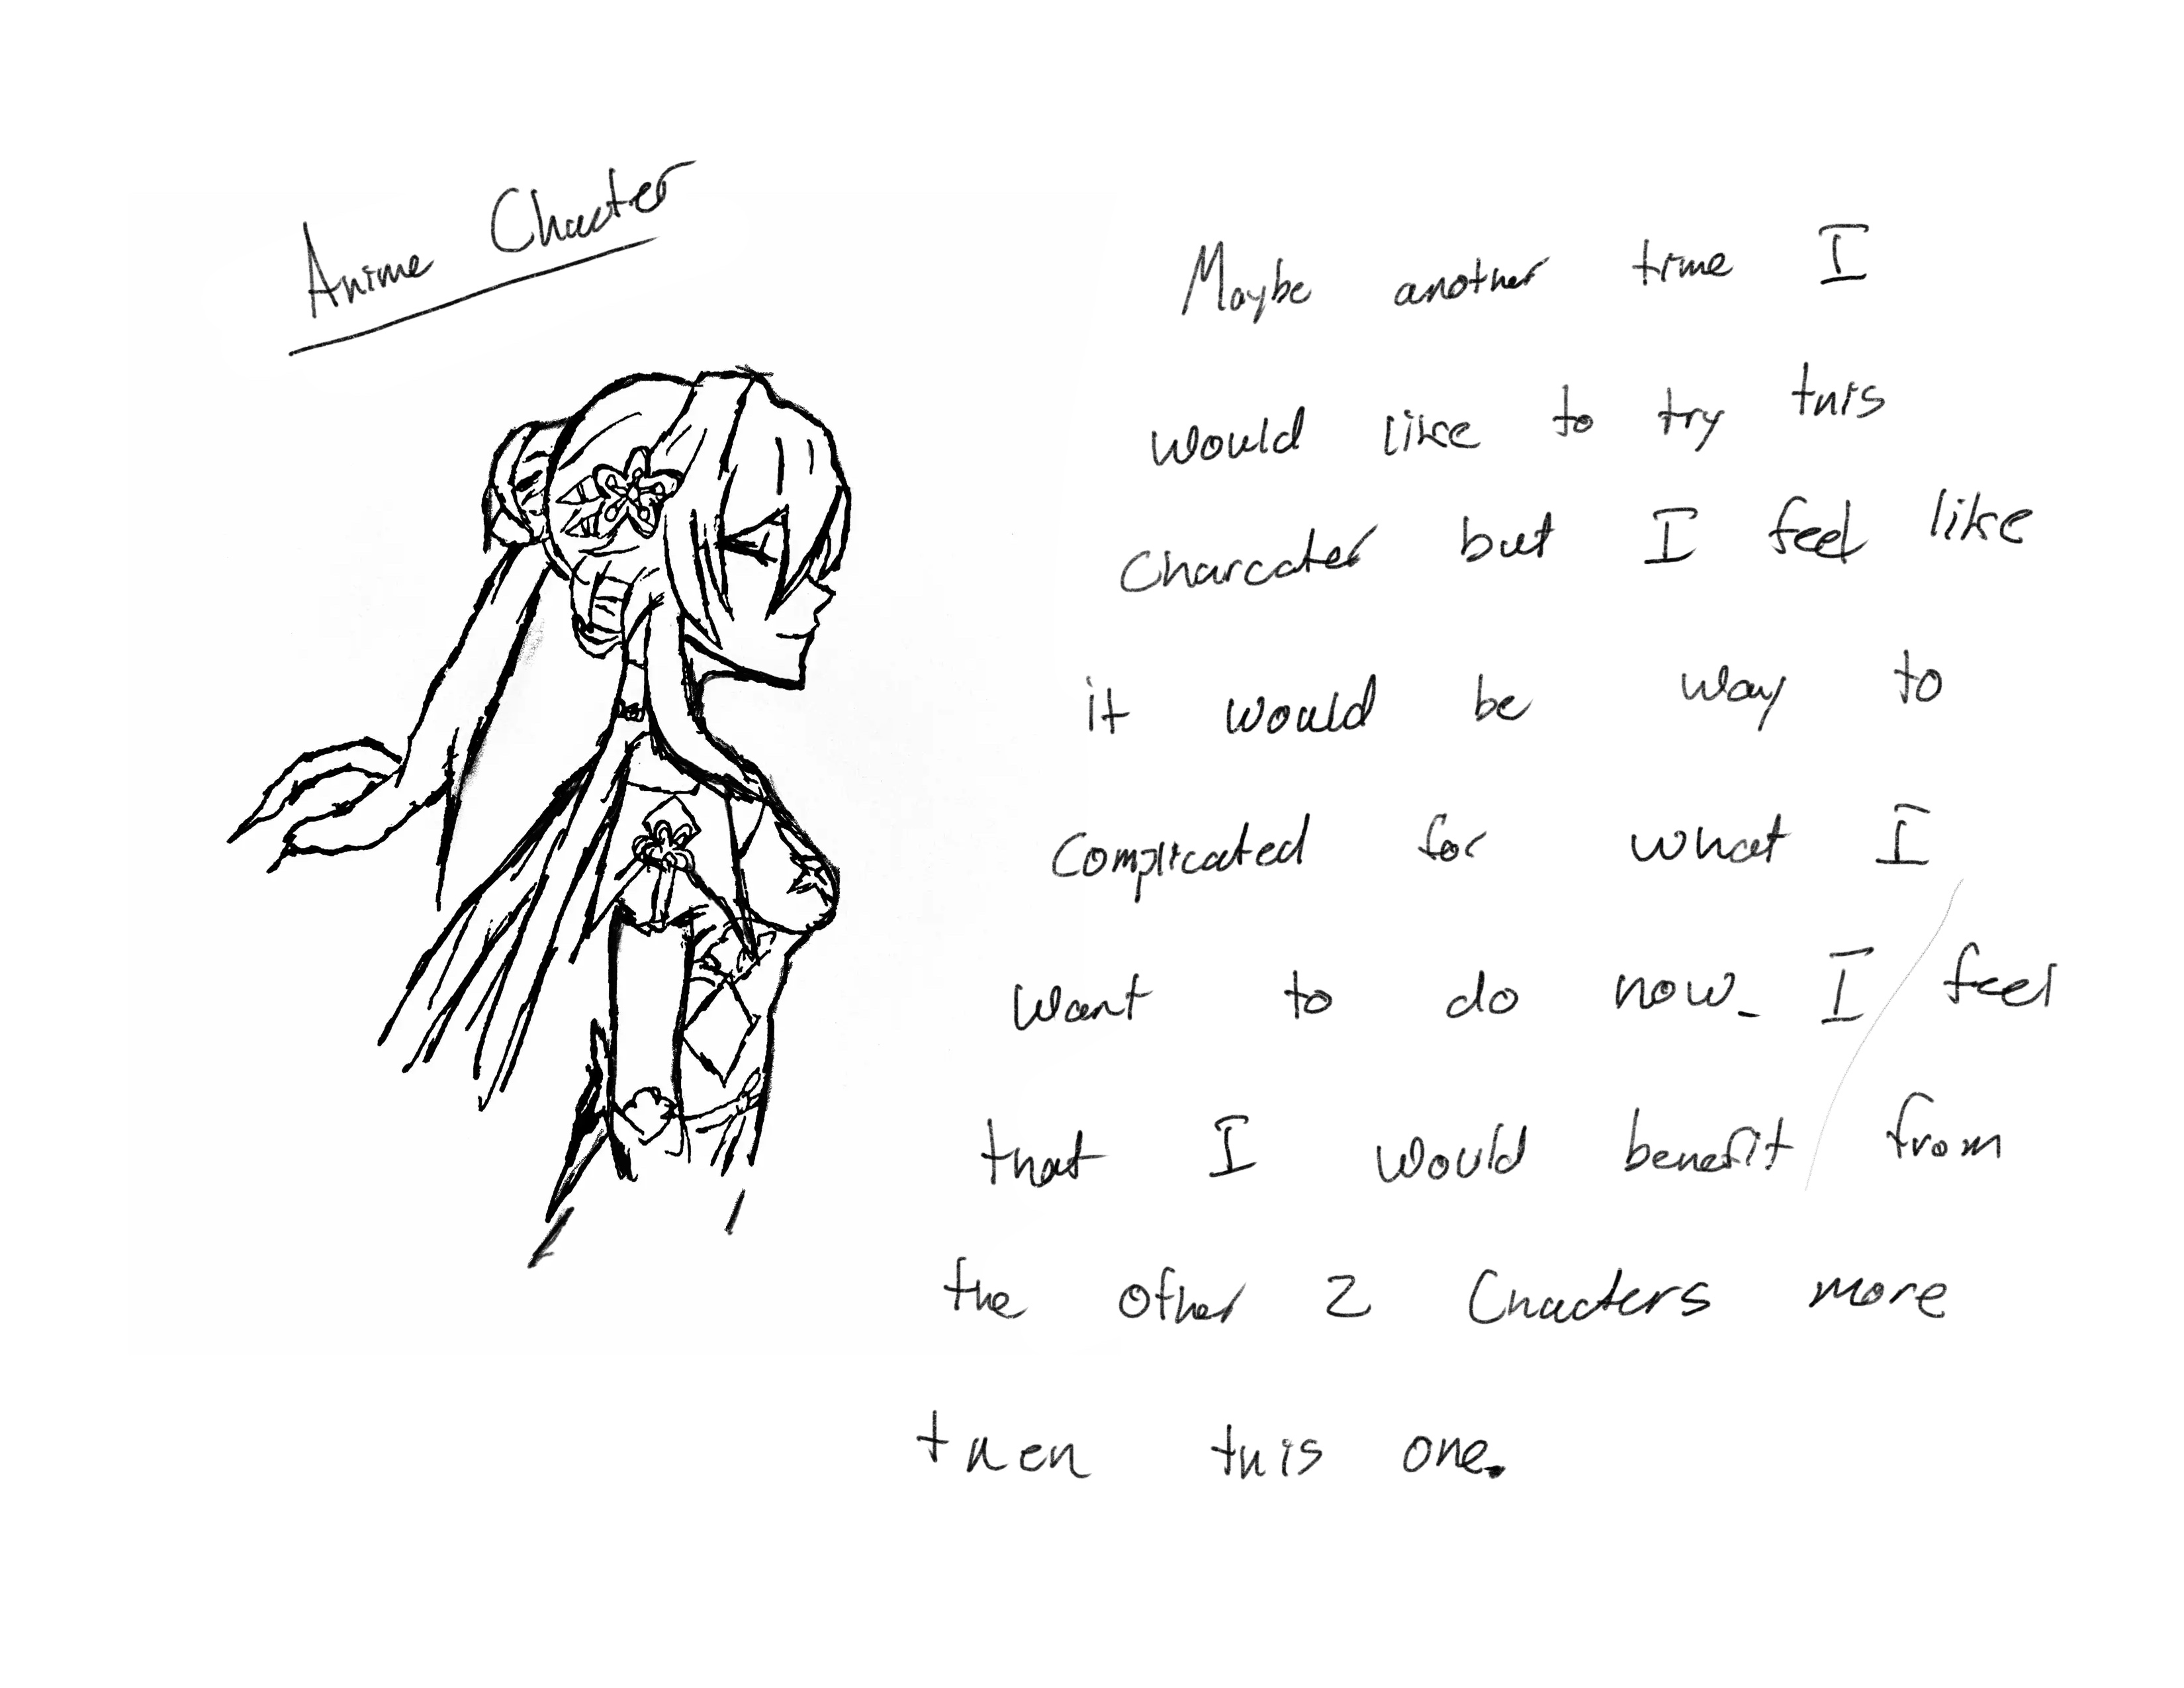 Anime Chacter
Maybe another time I
would like to try this
Charcater but I feel like
it would be way to
complicated for what I
want to do now. I feel
that I would benefit from
the other 2 Chacters more
then this one.